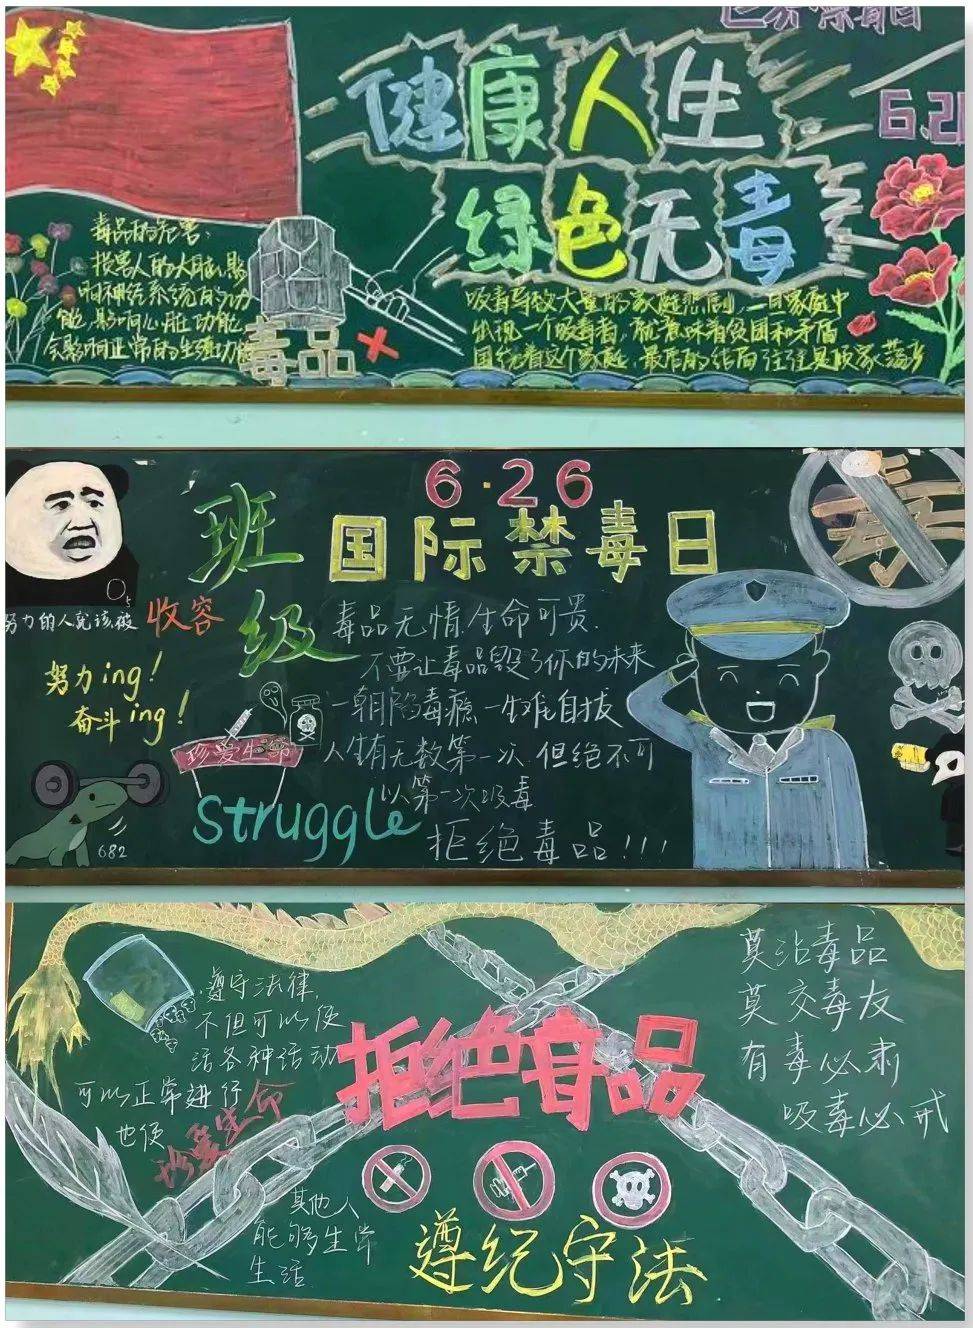 世界禁毒日
健康人生
6.2
绿色无毒
毒品的危害:
损害人的大脑,影
响神经系统的功
能,影响心脏功能
会影响正常的生理功能
毒品
吸毒导致大量的家庭悲剧,一旦家庭中
出现一个吸毒者,就意味着贫困和矛盾
围绕着这个家庭,最后的结局往往是
6·26
国际禁毒日
班级
努力的人就该被 收容
努力ing!
奋斗ing!
682
珍爱生命
Struggle
毒品无情,生命可贵.
不要让毒品毁了你的未来
一朝陷毒瘾 一生难自拔
人生有无数第一次.但绝不可
以第一次吸毒
拒绝毒品!!!
毒
遵守法律,
不但可以使
活各种活动
可以正常进行
也使
珍爱生命
其他人
能够生常
生活
拒绝毒品
遵纪守法
莫沾毒品
莫交毒友
有毒必肃
吸毒必戒